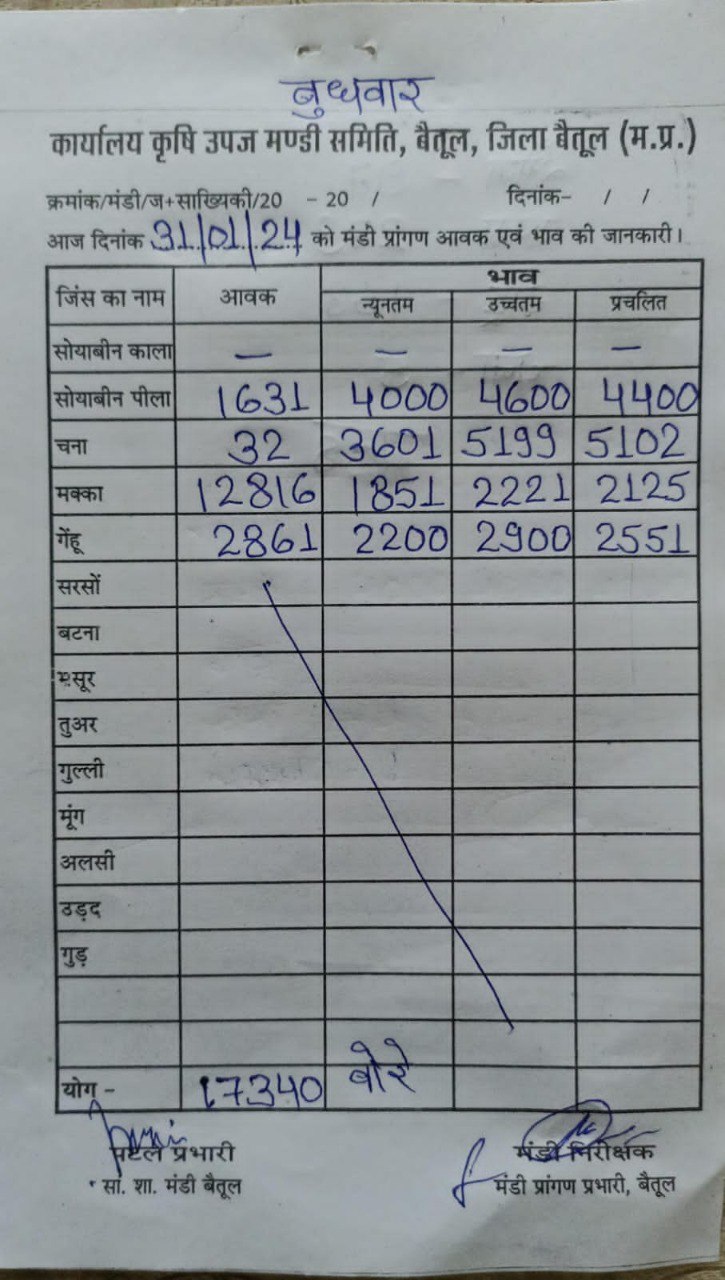 बुधवार
कार्यालय कृषि उपज मण्डी समिति, बैतूल, जिला बैतूल (म.प्र.)
क्रमांक/मंडी/ज+साख्यिकी/20 - 20 / दिनांक- / /
आज दिनांक 31/01/24 को मंडी प्रांगण आवक एवं भाव की जानकारी।
जिंस का नाम आवक भाव
न्यूनतम उच्चतम प्रचलित
सोयाबीन काला — — — —
सोयाबीन पीला 1631 4000 4600 4400
चना 32 3601 5199 5102
मक्का 12816 1851 2221 2125
गेंहू 2861 2200 2900 2551
सरसों
बटना
मसूर
तुअर
गुल्ली
मूंग
अलसी
उड़द
गुड़
योग - 17340 बोरे
पटल प्रभारी मंडी निरीक्षक
सा. शा. मंडी बैतूल मंडी प्रांगण प्रभारी, बैतूल